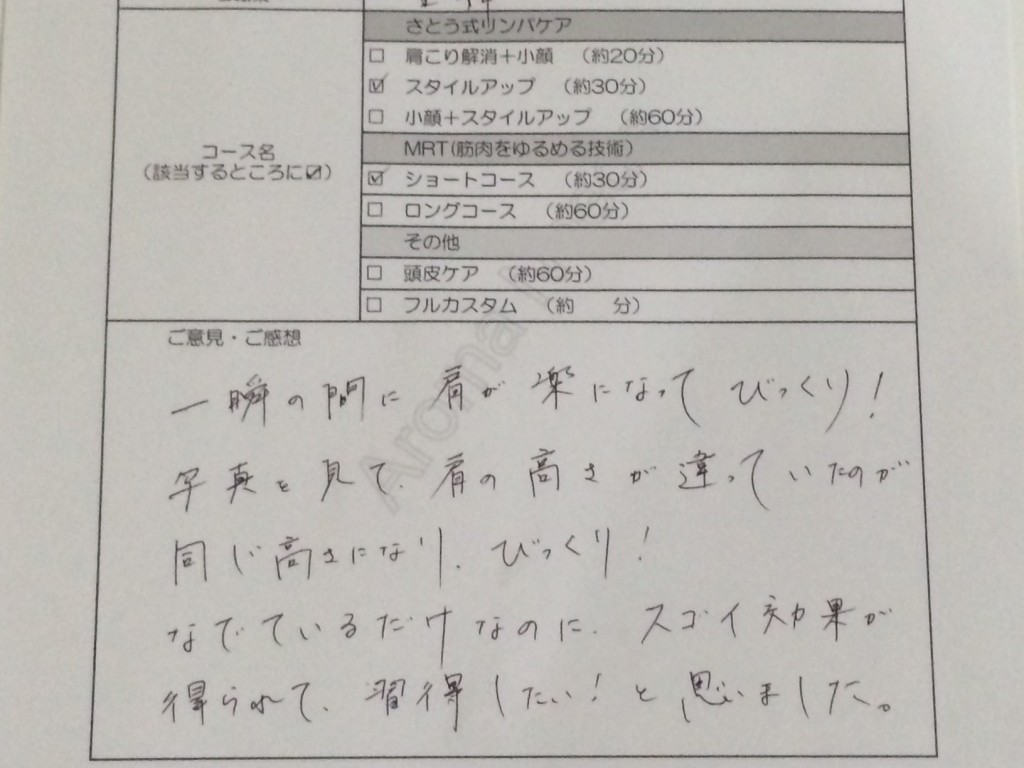 さとう式リンパケア
□ 肩こり解消＋小顔 （約20分）
☑ スタイルアップ （約30分）
□ 小顔＋スタイルアップ （約60分）
コース名
（該当するところに☑）
MRT（筋肉をゆるめる技術）
☑ ショートコース （約30分）
□ ロングコース （約60分）
その他
□ 頭皮ケア （約60分）
□ フルカスタム （約　　分）
ご意見・ご感想
Aroma
一瞬の間に肩が楽になってびっくり！
写真を見て、肩の高さが違っていたのが
同じ高さになり、びっくり！
なでているだけなのに、スゴイ効果が
得られて、習得したい！と思いました。